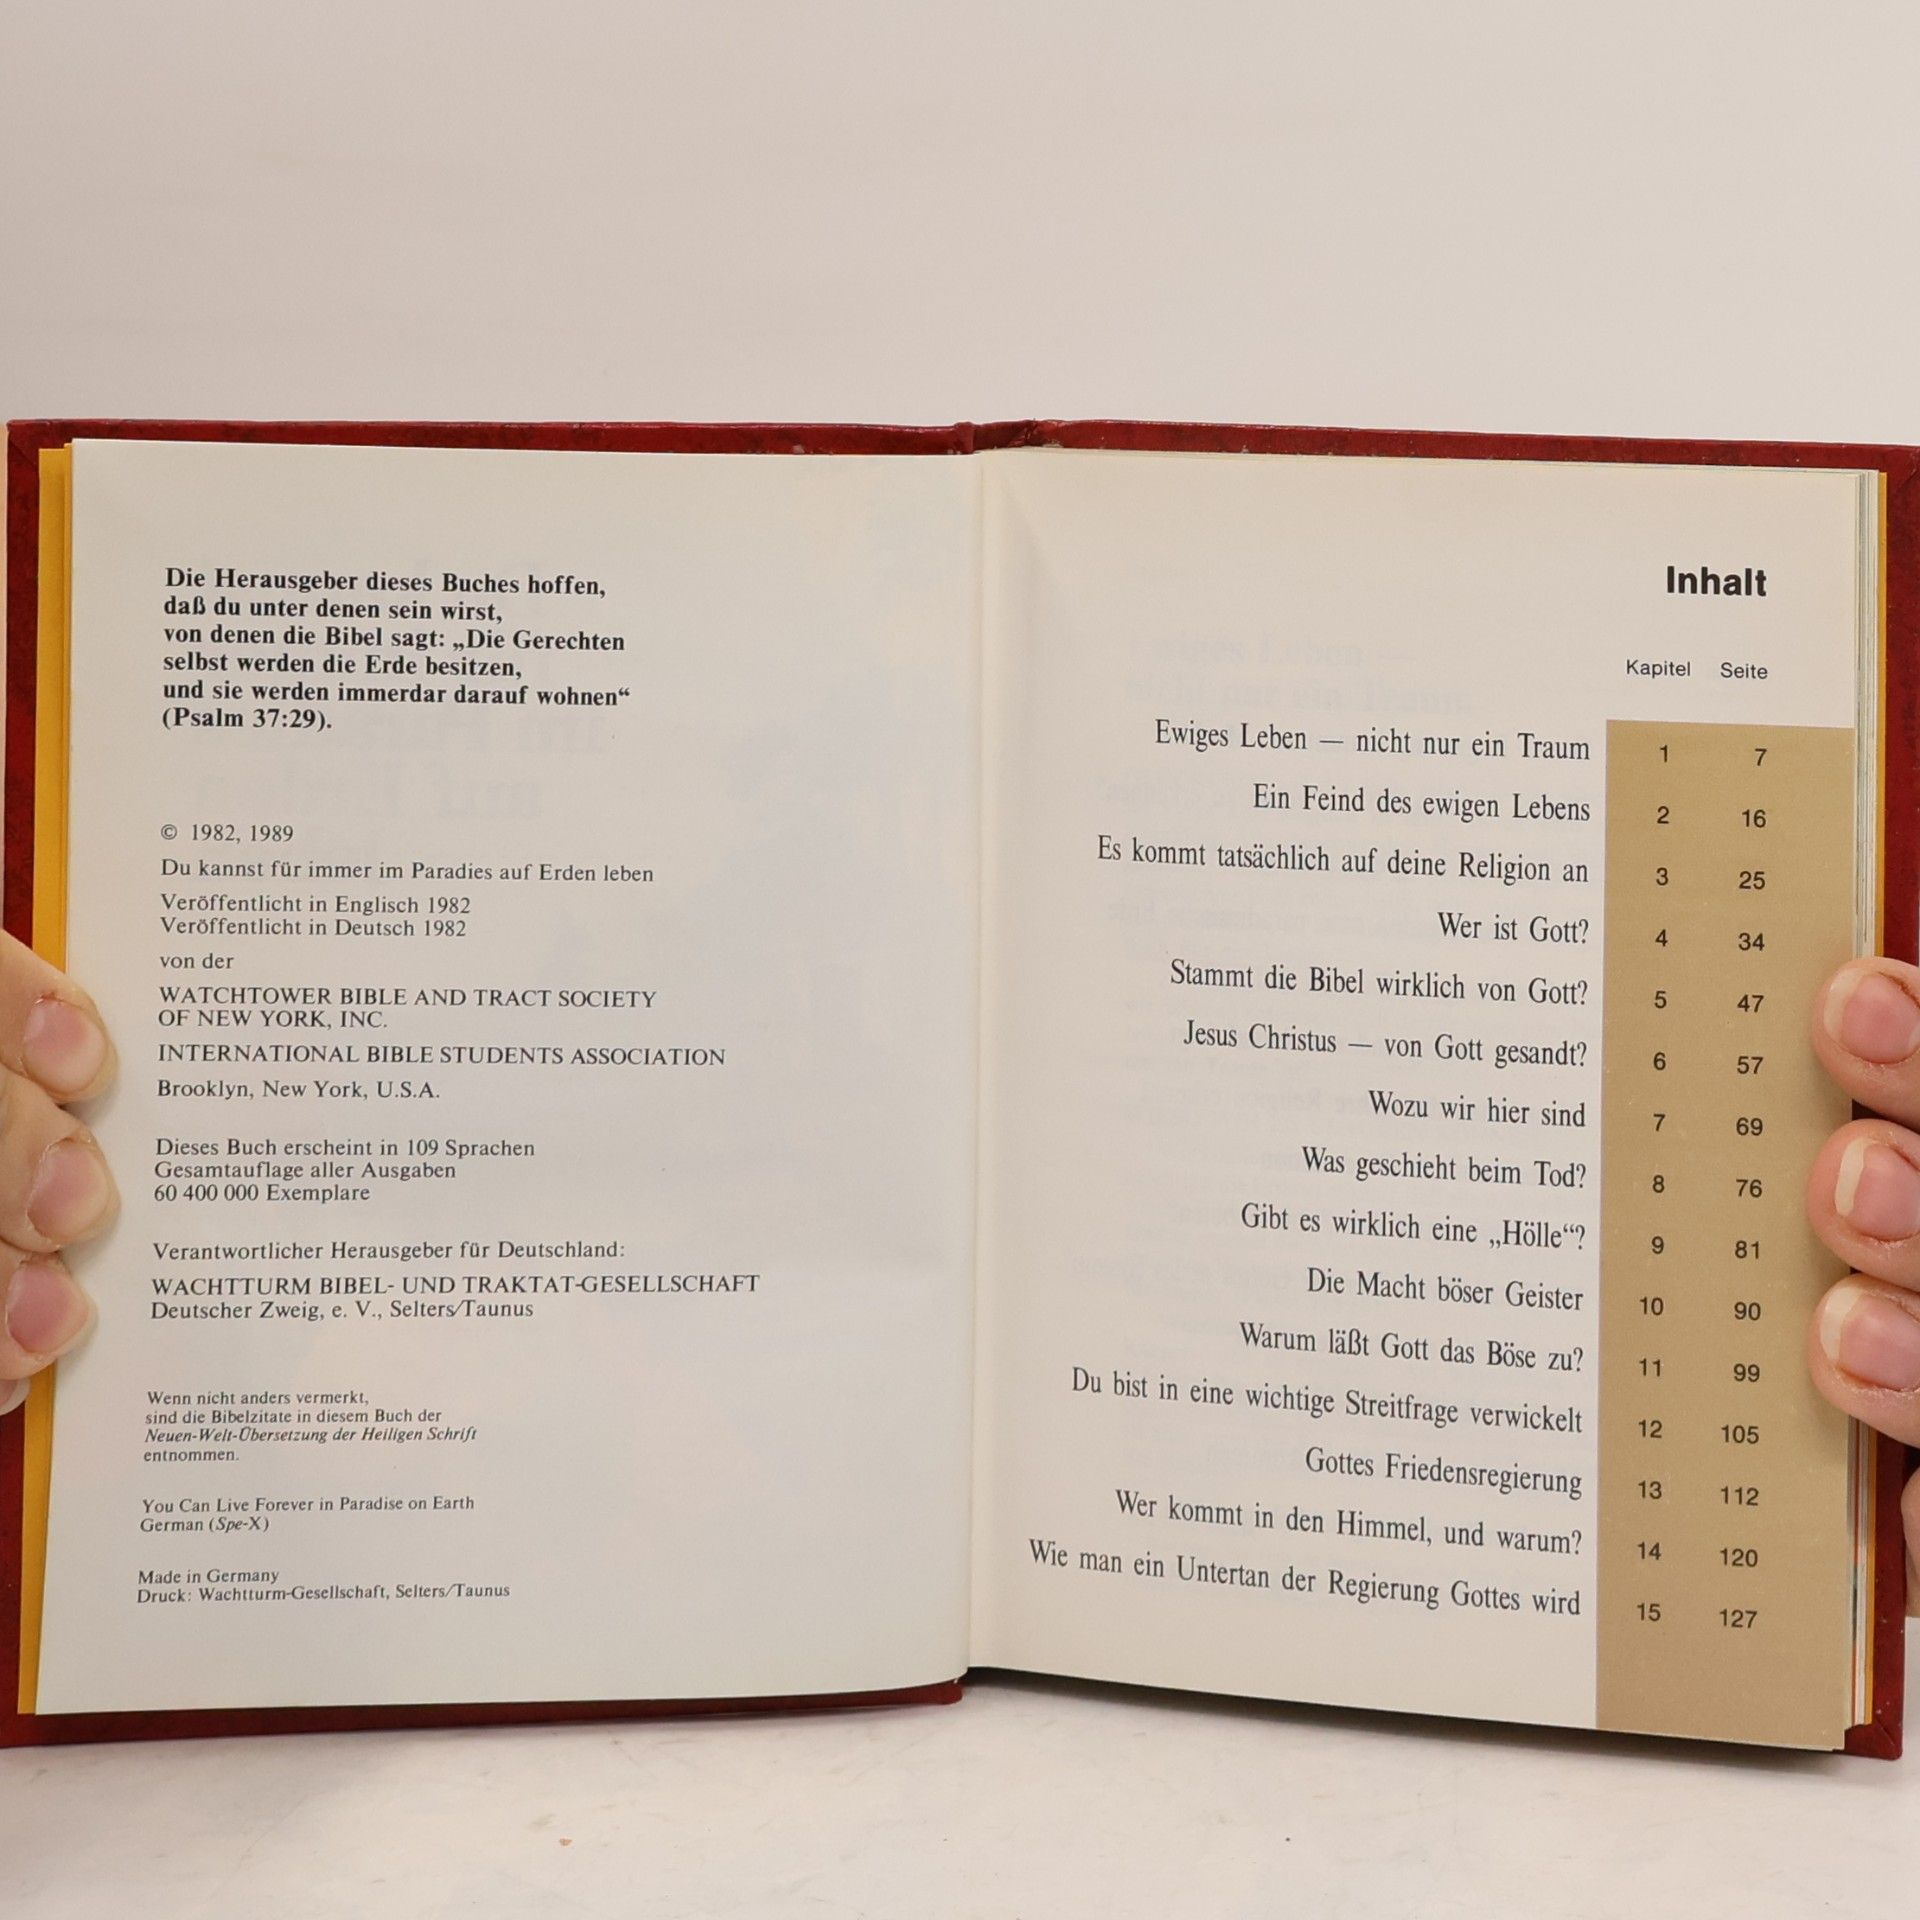 Die Herausgeber dieses Buches hoffen,
daß du unter denen sein wirst,
von denen die Bibel sagt: „Die Gerechten
selbst werden die Erde besitzen,
und sie werden immerdar darauf wohnen“
(Psalm 37:29).
© 1982, 1989
Du kannst für immer im Paradies auf Erden leben
Veröffentlicht in Englisch 1982
Veröffentlicht in Deutsch 1982
von der
WATCHTOWER BIBLE AND TRACT SOCIETY
OF NEW YORK, INC.
INTERNATIONAL BIBLE STUDENTS ASSOCIATION
Brooklyn, New York, U.S.A.
Dieses Buch erscheint in 109 Sprachen
Gesamtauflage aller Ausgaben
60 400 000 Exemplare
Verantwortlicher Herausgeber für Deutschland:
WACHTTURM BIBEL- UND TRAKTAT-GESELLSCHAFT
Deutscher Zweig, e. V., Selters/Taunus
Wenn nicht anders vermerkt,
sind die Bibelzitate in diesem Buch der
Neuen-Welt-Übersetzung der Heiligen Schrift
entnommen.
You Can Live Forever in Paradise on Earth
German (Spe-X)
Made in Germany
Druck: Wachtturm-Gesellschaft, Selters/Taunus
Inhalt
Kapitel Seite
Ewiges Leben — nicht nur ein Traum 1 7
Ein Feind des ewigen Lebens 2 16
Es kommt tatsächlich auf deine Religion an 3 25
Wer ist Gott? 4 34
Stammt die Bibel wirklich von Gott? 5 47
Jesus Christus — von Gott gesandt? 6 57
Wozu wir hier sind 7 69
Was geschieht beim Tod? 8 76
Gibt es wirklich eine „Hölle“? 9 81
Die Macht böser Geister 10 90
Warum läßt Gott das Böse zu? 11 99
Du bist in eine wichtige Streitfrage verwickelt 12 105
Gottes Friedensregierung 13 112
Wer kommt in den Himmel, und warum? 14 120
Wie man ein Untertan der Regierung Gottes wird 15 127